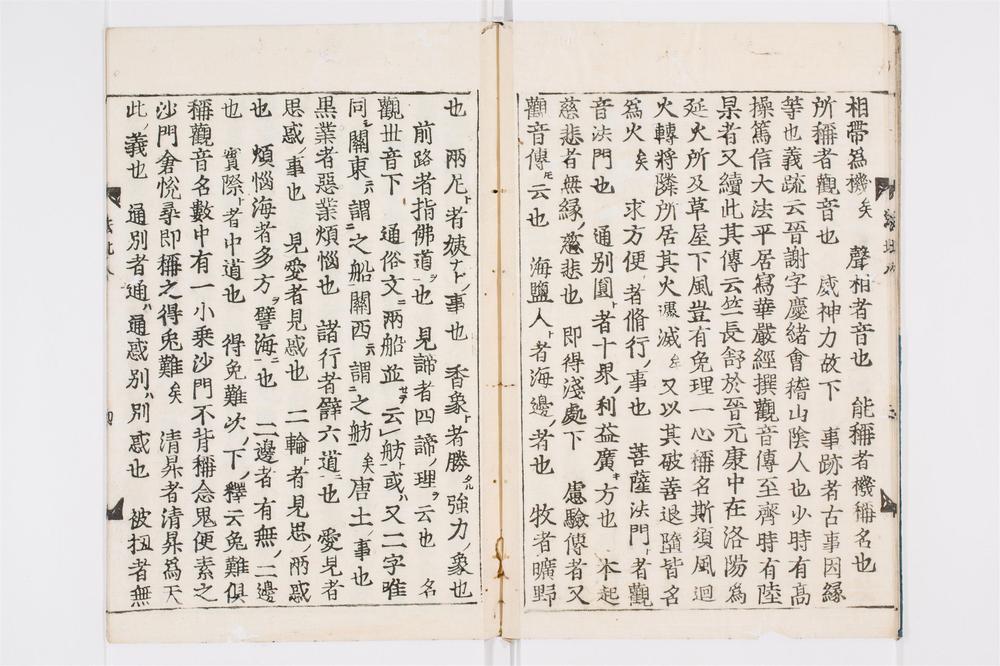 相帶爲機矣　聲相者音也　能稱者機稱名也
所稱者觀音也　威神力故下　事跡者古事因縁
等也義疏云晉謝字慶緒會稽山陰人也少時有高
操篤信大法平居寫華嚴經撰觀音傳至齊時有陸
杲者又續此其傳云竺長舒於晉元康中在洛陽爲
延火所及草屋下風豈有免理一心稱名斯須風迴
火轉將隣所居其火還滅矣　又以其破善退墮皆名
爲火矣　求方便者脩行ノ事也　菩薩法門ト者觀
音法門也　通別圓ト者十界ノ利益廣キ方也　本起
慈悲者無縁ノ慈悲也　即得淺處下　應驗傳者又
觀音傳トモ云也　海鹽人ト者海邊ノ者也　牧者曠野
也　兩尼ト者姨ナトノ事也　香象ト者勝タル強力ノ象也
前路者指佛道ヲ也　見諦者四諦ノ理ヲ云也　名
觀世音下　通俗文ニ兩船並セテ云ノ舫ト或ハ又二字唯
同シ關東ニハ謂ニ之船ト關西ニハ謂ニ之舫ト矣唐土ノ事也
黒業者惡業煩惱也　諸行者辭六道ニ也　愛見者
思惑ノ事也　見愛者見惑也　二輪ト者見思ノ兩惑
也　煩惱海者多方ヲ譬海ニ也　二邊者有無ノ二邊
也　實際ト者中道也　得免難次ノ下ノ釋云免難俱
稱觀音名數中有一小乘沙門不肯稱念鬼便索之
沙門倉悅尋即稱之得免難矣　清昇者清昇爲天
此ノ義也　通別者通ハ通惑別ハ別惑也　被扭者無
四